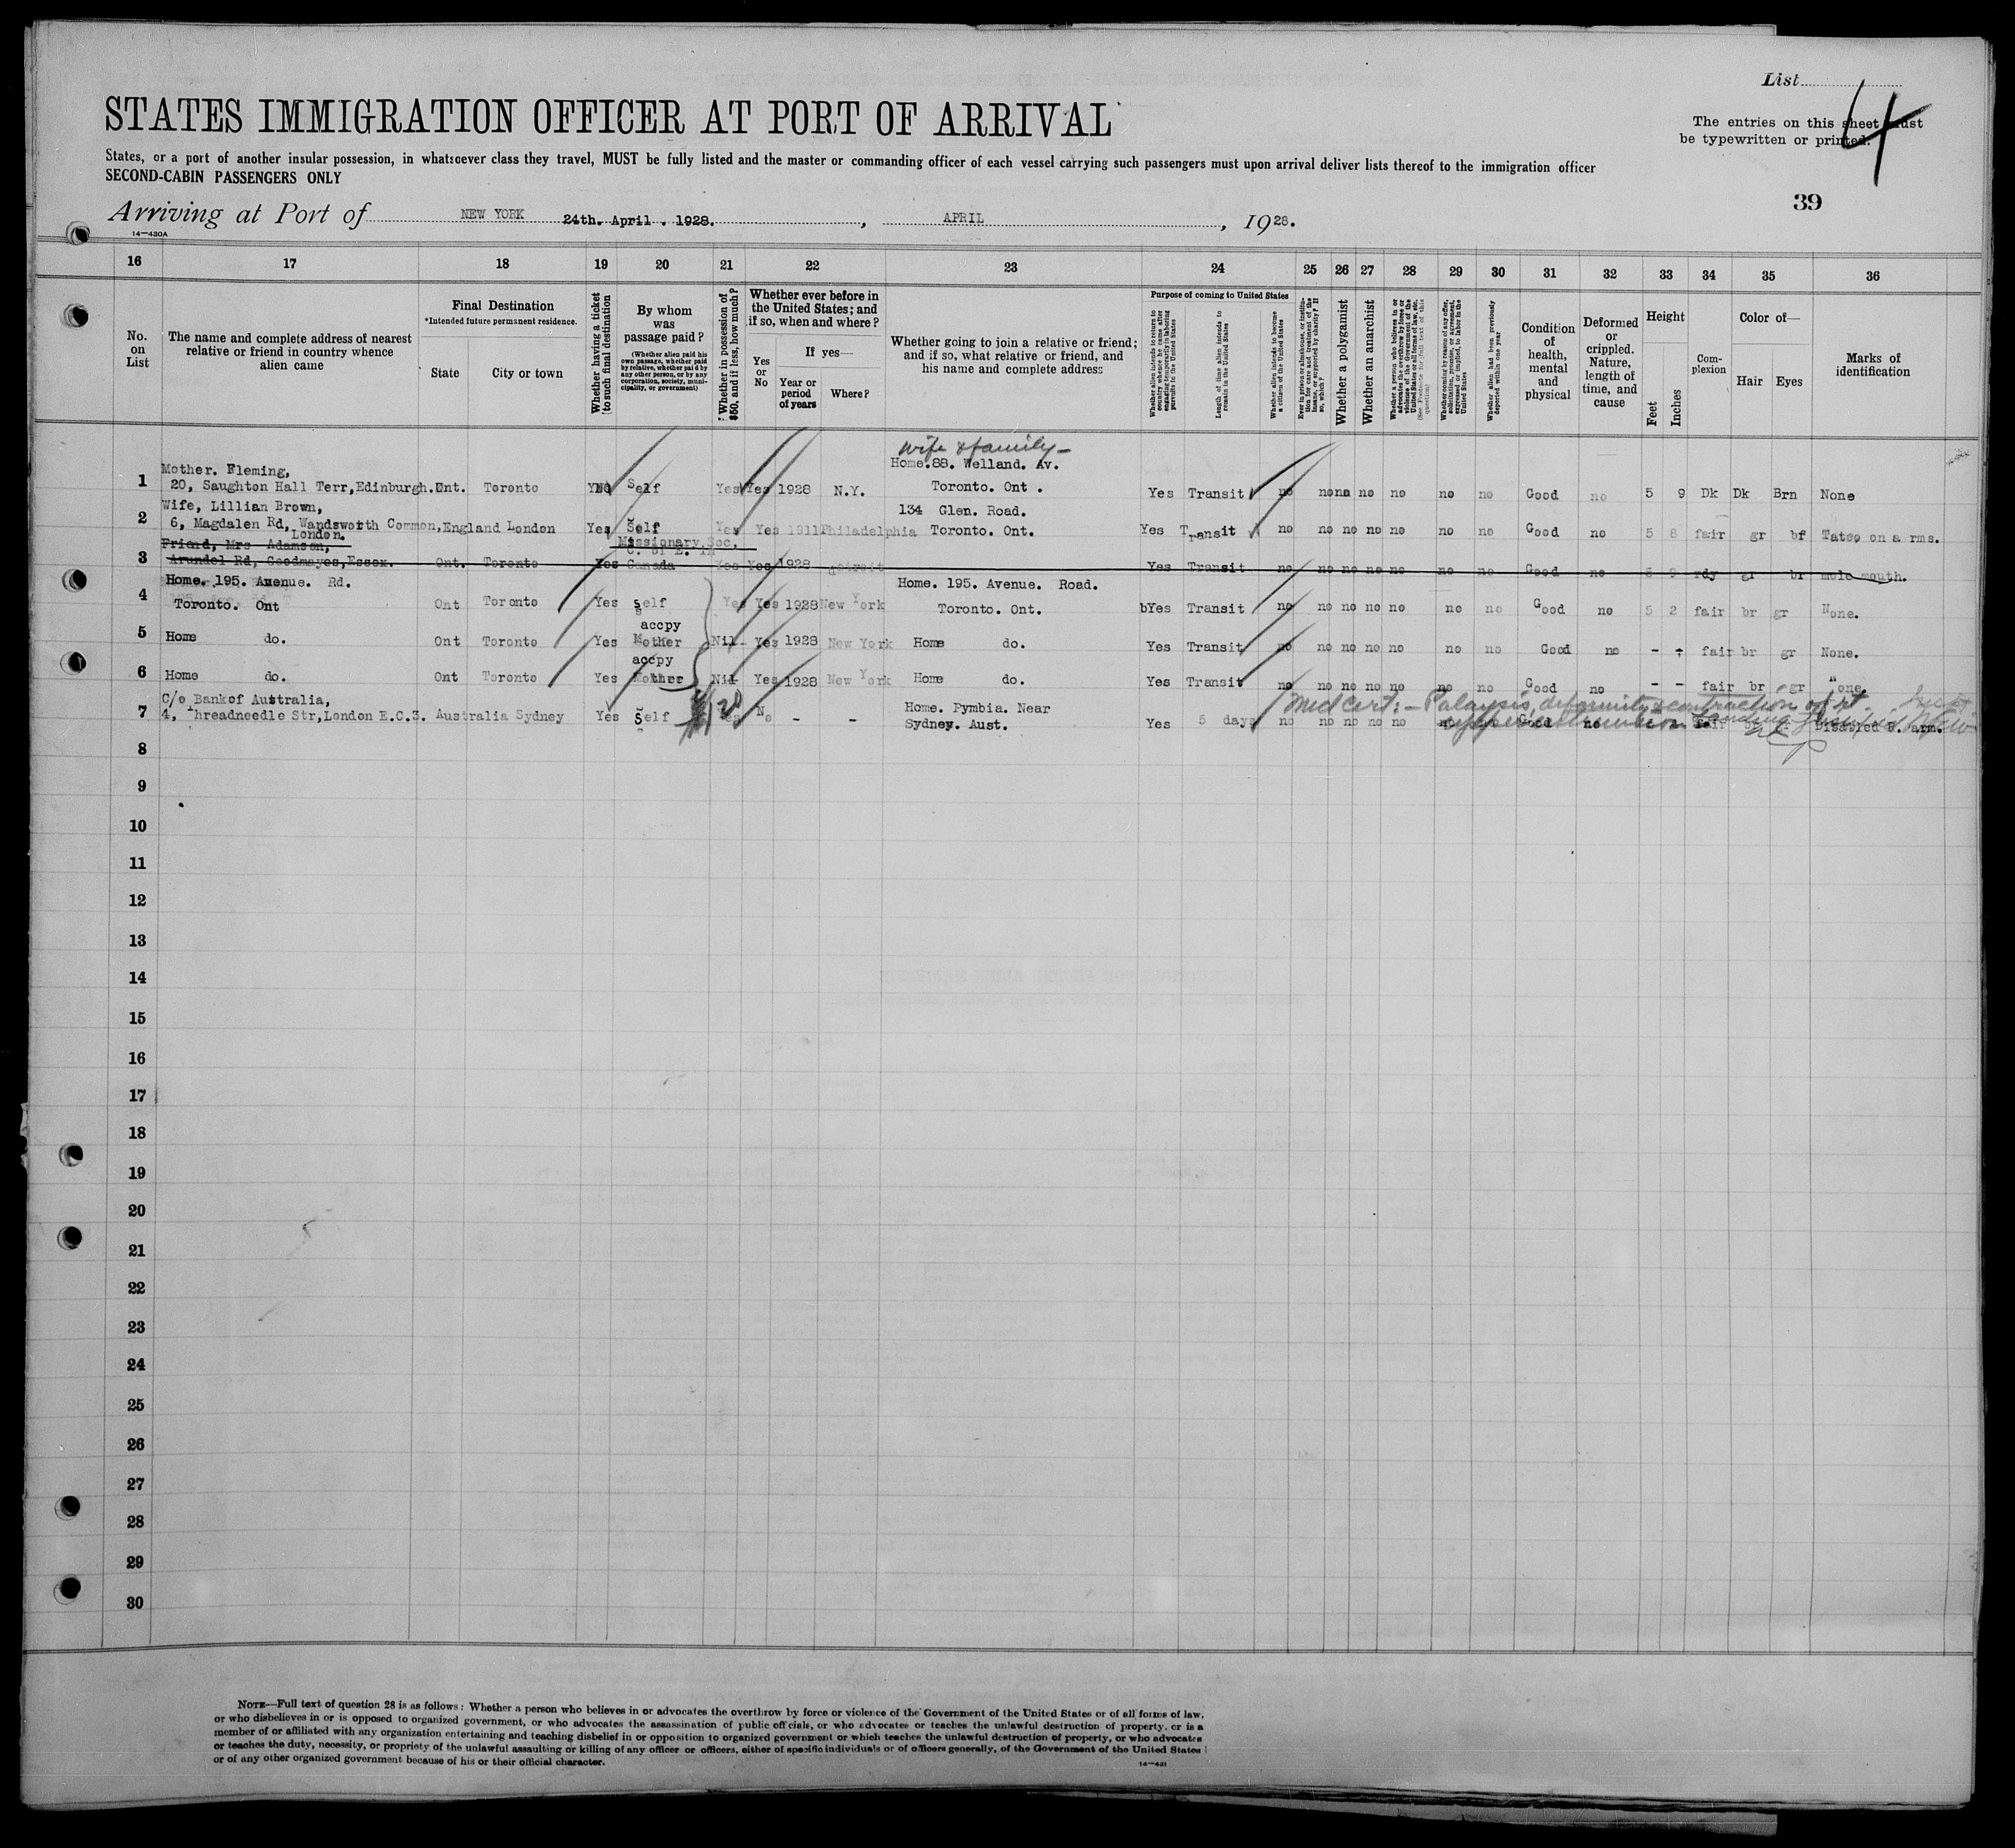 List
4
The entries on this sheet must
be typewritten or printed.
STATES IMMIGRATION OFFICER AT PORT OF ARRIVAL
States, or a port of another insular possession, in whatsoever class they travel, MUST be fully listed and the master or commanding officer of each vessel carrying such passengers must upon arrival deliver lists thereof to the immigration officer
SECOND-CABIN PASSENGERS ONLY
39
Arriving at Port of NEW YORK 24th. April . 1928. , APRIL , 1928.
14—430A
16 17 18 19 20 21 22 23 24 25 26 27 28 29 30 31 32 33 34 35 36
No. on List
The name and complete address of nearest relative or friend in country whence alien came
Final Destination
*Intended future permanent residence.
State
City or town
Whether having a ticket to such final destination
By whom was passage paid?
(Whether alien paid his own passage, whether paid by relative, whether paid by any other person, or by any corporation, society, municipality, or government)
Whether in possession of $50, and if less, how much?
Whether ever before in the United States; and if so, when and where?
Yes or No
If yes—
Year or period of years
Where?
Whether going to join a relative or friend; and if so, what relative or friend, and his name and complete address
Purpose of coming to United States
Whether alien intends to return to country whence he came after engaging temporarily in laboring pursuits in the United States
Length of time alien intends to remain in the United States
Whether alien intends to become a citizen of the United States
Ever in prison or almshouse, or institution for care and treatment of the insane, or supported by charity? If so, which?
Whether a polygamist
Whether an anarchist
Whether a person who believes in or advocates the overthrow by force or violence of the Government of the United States or all forms of law, etc. (See footnote for full text of this question)
Whether coming by reason of any offer, solicitation, promise, or agreement, expressed or implied, to labor in the United States
Whether alien had been previously deported within one year
Condition of health, mental and physical
Deformed or crippled. Nature, length of time, and cause
Height
Feet
Inches
Complexion
Color of—
Hair
Eyes
Marks of identification
wife & family —
Mother. Fleming, Home.88. Welland. Av.
1 20, Saughton Hall Terr,Edinburgh. Ont. Toronto Self Yes Yes 1928 N.Y. Toronto. Ont . Yes Transit no no no no no no no Good no 5 9 Dk Dk Brn None
Wife, Lillian Brown, 134 Glen. Road.
2 6, Magdalen Rd, Wandsworth Common,England London Yes Self Yes Yes 1911 Philadelphia Toronto. Ont. Yes Transit no no no no no no no Good no 5 8 fair gr bf Tatoo on a rms.
London.
Friend, Mrs Adamson, Missionary Soc.
3 Arundel Rd, Goodmayes,Essex. Ont. Toronto Yes Canada Yes Yes 1928 Yes Transit no no no no no no no Good no rdy gr br mole mouth.
Home. 195. Avenue. Rd. Home. 195. Avenue. Road.
4 Toronto. Ont Ont Toronto Yes self Yes Yes 1928 New York Toronto. Ont. bYes Transit no no no no no no no Good no 5 2 fair br gr None.
accpy
5 Home do. Ont Toronto Yes Mother Nil Yes 1928 New York Home do. Yes Transit no no no no no no no Good no - - fair br gr None.
accpy
6 Home do. Ont Toronto Yes Mother Nil Yes 1928 New York Home do. Yes Transit no no no no no no no Good no - - fair br gr None
C/o Bankof Australia, Home. Pymbia. Near Med cert: — Palaysis, deformity & contraction of rt
7 4, Threadneedle Str,London E.C.3. Australia Sydney Yes Self Yes No - - Sydney. Aust. Yes 5 days no no no no no no no Good no Disabled R. arm.
8
9
10
11
12
13
14
15
16
17
18
19
20
21
22
23
24
25
26
27
28
29
30
NOTE—Full text of question 28 is as follows: Whether a person who believes in or advocates the overthrow by force or violence of the Government of the United States or of all forms of law,
or who disbelieves in or is opposed to organized government, or who advocates the assassination of public officials, or who advocates or teaches the unlawful destruction of property, or is a
member of or affiliated with any organization entertaining and teaching disbelief in or opposition to organized government or which teaches the unlawful destruction of property, or who advocates
or teaches the duty, necessity, or propriety of the unlawful assaulting or killing of any officer or officers, either of specific individuals or of officers generally, of the Government of the United States
or of any other organized government because of his or their official character.
14—431